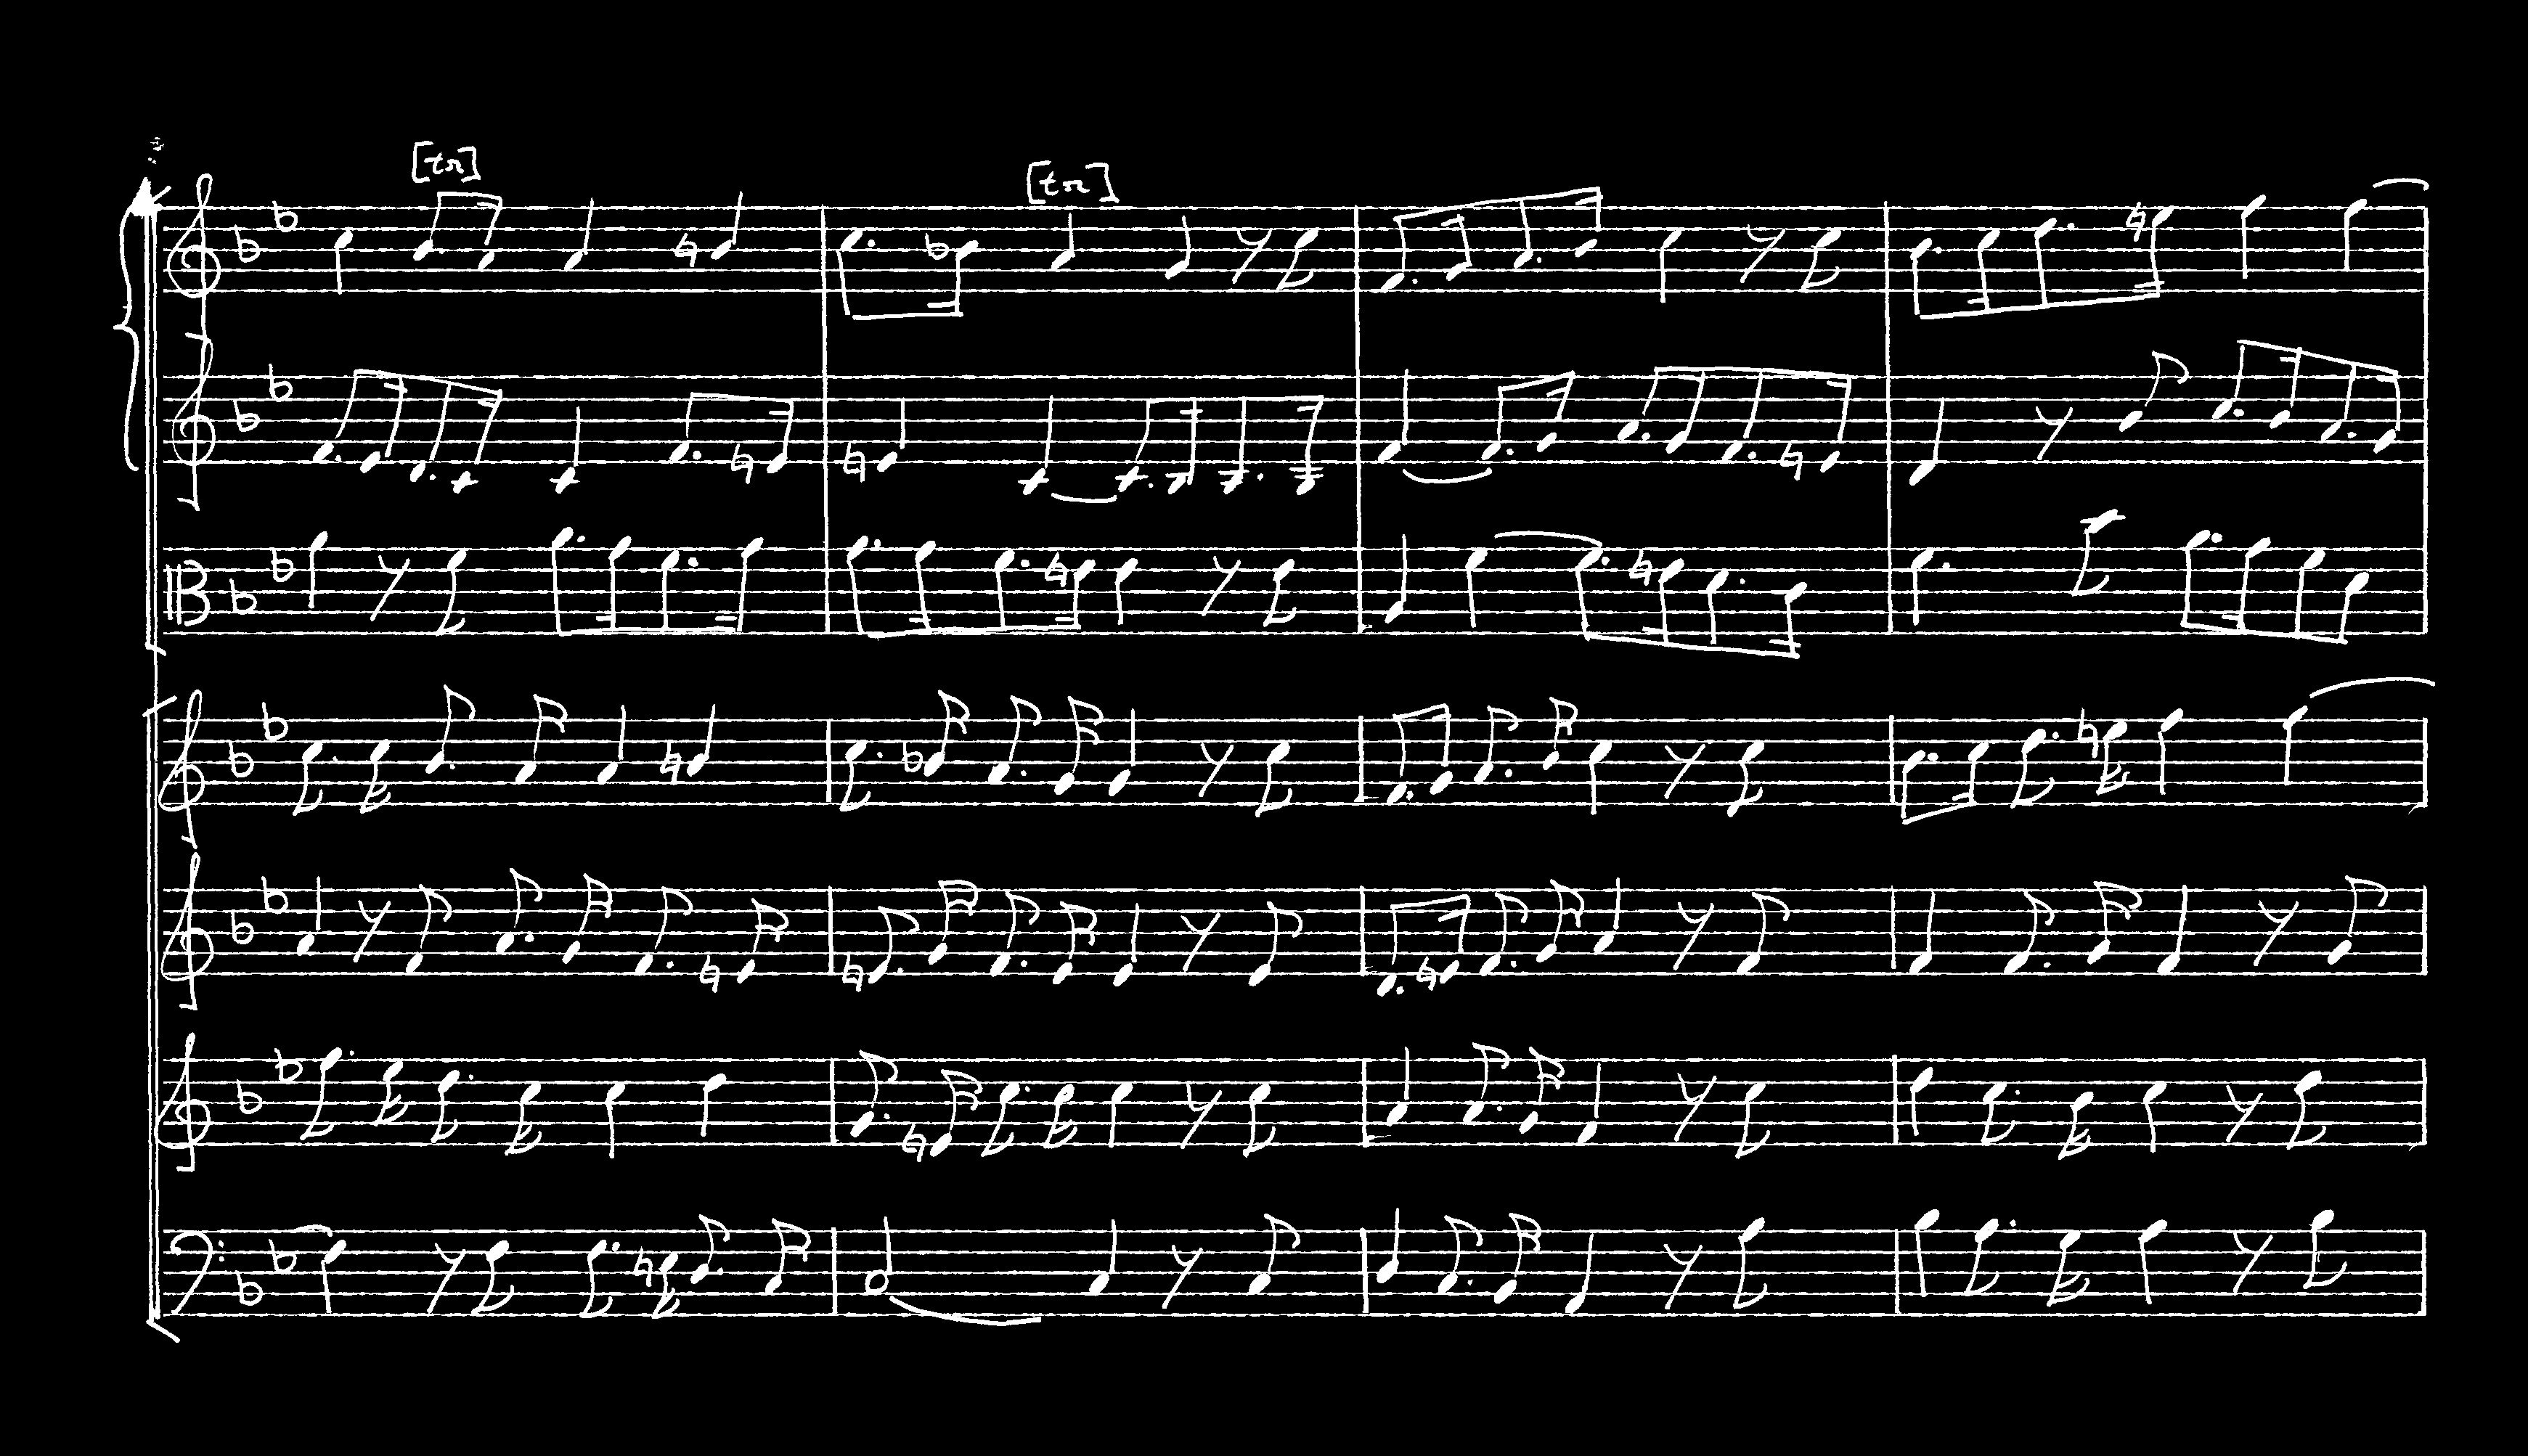 [tr] [tr]